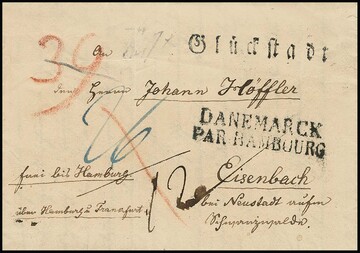 39
An
Glückstadt
den Herrn Johann Höffler
DANEMARCK
PAR HAMBOURG
26
frei bis Hamburg
Eisenbach
über Hamburg u Frankfurt
12
bei Neustadt aufm
Schwarzwalde.